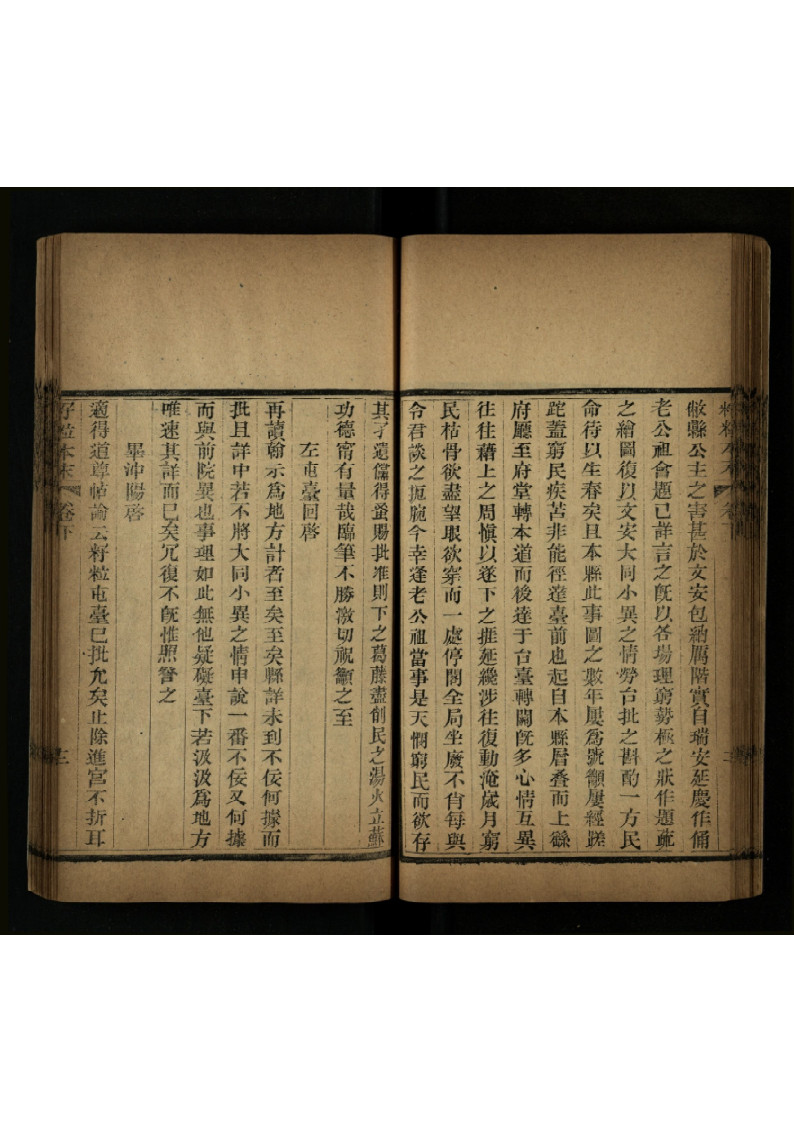 敝縣公主之害甚於文安包納厲階實自瑞安延慶作俑
老公祖會題已詳言之旣以各場理窮勢極之狀作題疏
之繪圖復以文安大同小異之情勞台批之斟酌一方民
命待以生春矣且本縣此事圖之數年屢爲號籲屢經蹉
跎蓋窮民疾苦非能徑達臺前也起自本縣層叠而上繇
府廳至府堂轉本道而後達于台臺轉關旣多心情互異
往往藉上之周愼以遂下之捱延纔涉往復動淹歲月窮
民枯骨欲盡望眼欲穿而一處停閣全局坐廢不肖每與
令君談之扼腕今幸逢老公祖當事是天憫窮民而欲存
其孑遺儻得蚤賜批准則下之葛藤盡剷民之湯火立蘇
功德甯有量哉臨筆不勝激切祝籲之至
左屯臺回啓
再讀翰示爲地方計者至矣至矣縣詳未到不佞何據而
批且詳中若不將大同小異之情申說一番不佞又何據
而與前院異也事理如此無他疑礙臺下若汲汲爲地方
唯速其詳而已矣冗復不旣惟照詧之
畢沖陽啓
適得道尊帖諭云籽粒屯臺已批允矣止除進宮不折耳
籽粒本末 卷下 三